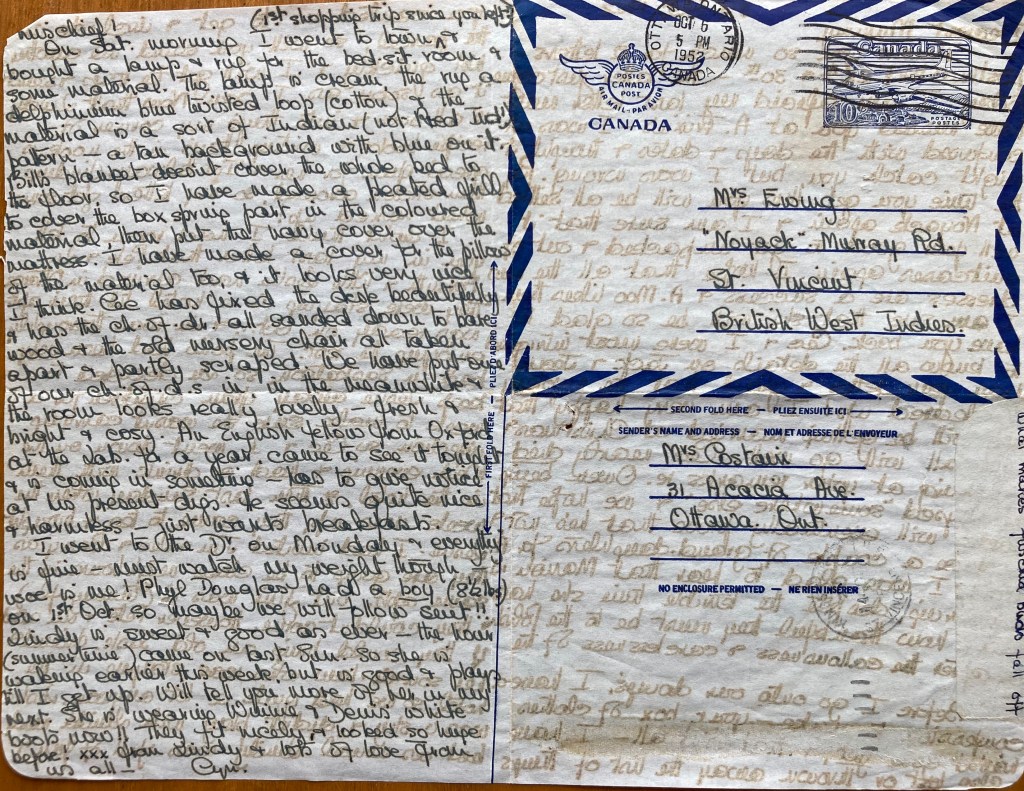 mischief! (1st shopping trip since you left)
On Sat. morning I went to town &
bought a lamp & rug for the bed-sit. room &
some material. The lamp is cream the rug a
delphinium blue twisted loop (cotton) & the
material is a sort of Indian (not Red Ind!)
pattern – a tan background with blue on it.
Bill's blanket doesn't cover the whole bed to
the floor, so I have made a pleated frill
to cover the box spring part in the coloured
material, then put the navy cover over the
matress. I have made a cover for the pillow
of the material too, & it looks very nice
I think. Cec has fixed the desk beautifully
& has the ch. of dr. all sanded down to bare
wood & the old nursery chair all taken
apart & partly scraped. We have put one
of our ch. of d's in in the meanwhile &
the room looks really lovely – fresh &
bright & cosy. An English fellow from Oxford
at the Lab. for a year came to see it tonight
& is coming in sometime – has to give notice
at his present digs. He seems quite nice
& harmless – just wants breakfasts.
I went to the Dr. on Monday & everything
is fine – must watch my weight though –
woe is me! Phyl Douglas had a boy (8½ lbs)
on 1st Oct. so maybe we will follow suit!!
Lindy is sweet & good as ever – the hour
(summer time) came on last Sun. so she is
waking earlier this week, but is good & plays
till I get up. Will tell you more of her in my
next. She is wearing Winnie & Denis' white
boots now!! They fit nicely, & looked so huge
before! xxx from Lindy & lots of love from
us all – Cyn.
FIRST FOLD HERE — PLIEZ D'ABORD ICI
OTTAWA ONTARIO
OCT 6
5 PM
1952
CANADA
POSTES
CANADA
POST
AIR MAIL - PAR AVION
CANADA
Canada
10
POSTAGE
POSTES
Mrs Ewing
"Noyack" Murray Rd.
St. Vincent
British West Indies.
SECOND FOLD HERE — PLIEZ ENSUITE ICI
SENDER'S NAME AND ADDRESS — NOM ET ADRESSE DE L'ENVOYEUR
Mrs Costain
31 Acacia Ave.
Ottawa. Ont.
NO ENCLOSURE PERMITTED — NE RIEN INSÉRER